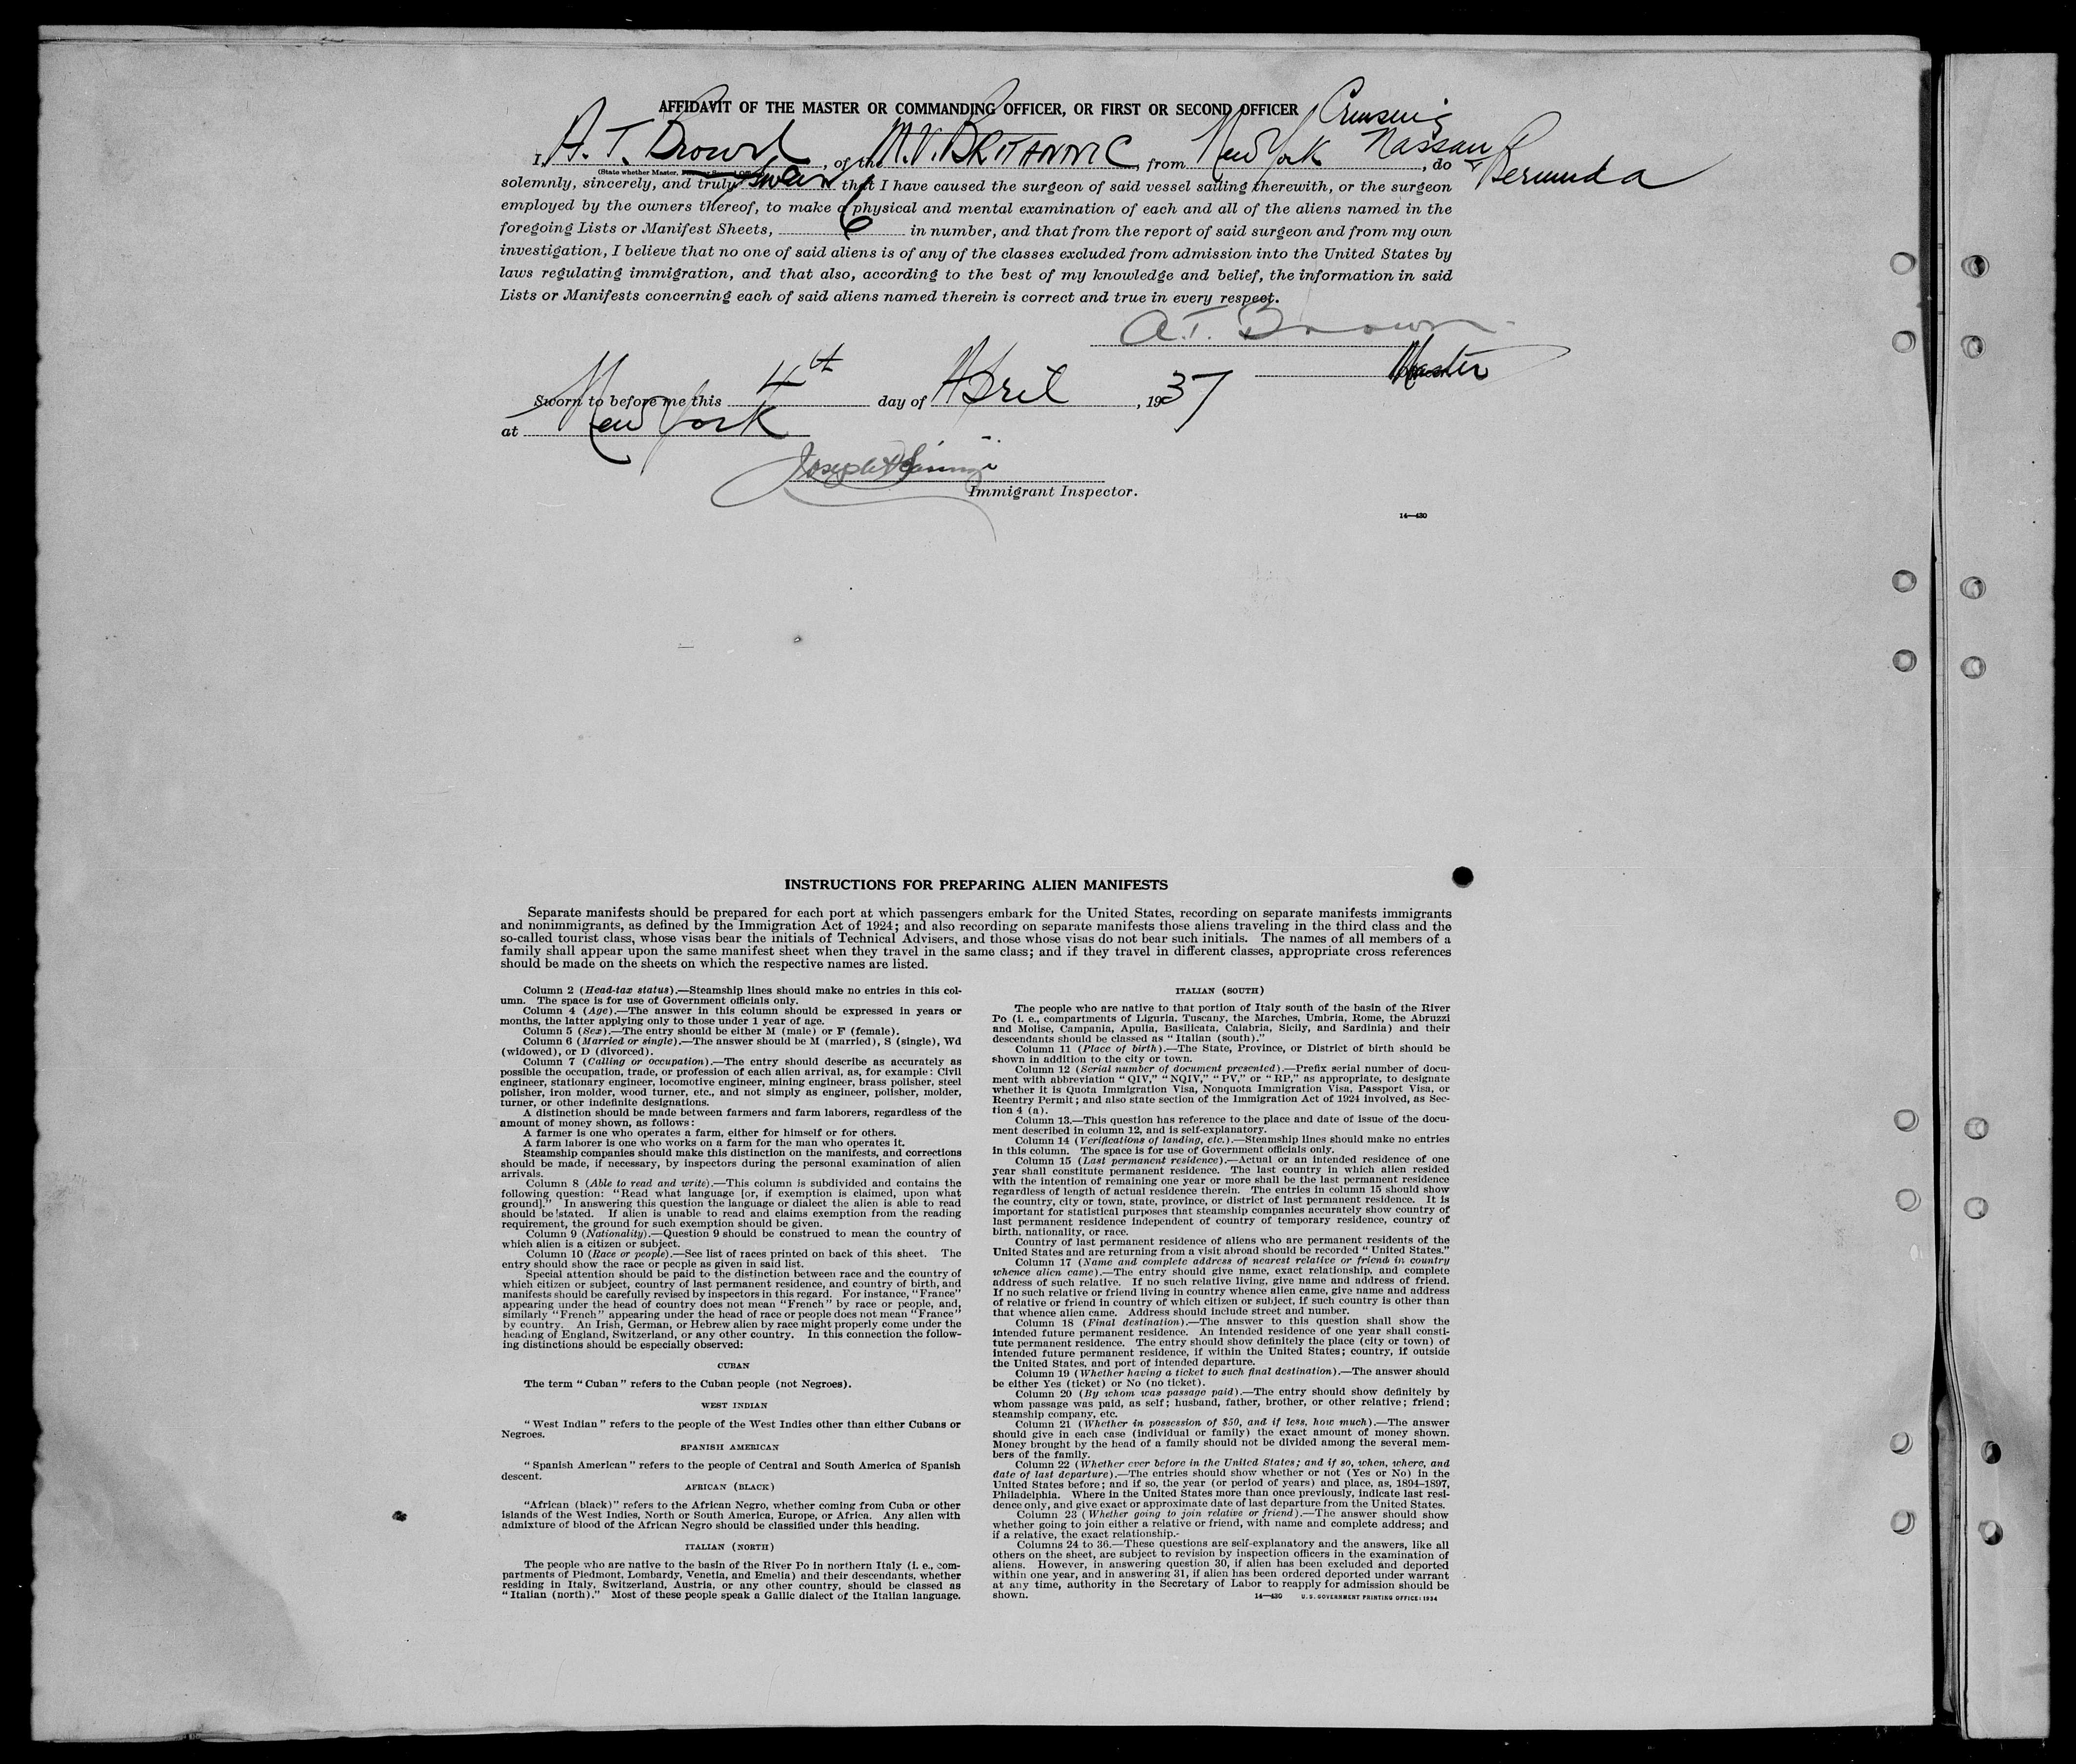 AFFIDAVIT OF THE MASTER OR COMMANDING OFFICER, OR FIRST OR SECOND OFFICER
Cruising
I, A. T. Brown, of the M.V. BRITANNIC, from New York Nassau, do
& Bermuda
(State whether Master, First or Second Officer)
solemnly, sincerely, and truly swear that I have caused the surgeon of said vessel sailing therewith, or the surgeon
employed by the owners thereof, to make a physical and mental examination of each and all of the aliens named in the
foregoing Lists or Manifest Sheets, 6 in number, and that from the report of said surgeon and from my own
investigation, I believe that no one of said aliens is of any of the classes excluded from admission into the United States by
laws regulating immigration, and that also, according to the best of my knowledge and belief, the information in said
Lists or Manifests concerning each of said aliens named therein is correct and true in every respect.
A.T. Brown
Master
Sworn to before me this 4th day of April, 1937
at New York
Joseph
Immigrant Inspector.
14—430
INSTRUCTIONS FOR PREPARING ALIEN MANIFESTS
Separate manifests should be prepared for each port at which passengers embark for the United States, recording on separate manifests immigrants
and nonimmigrants, as defined by the Immigration Act of 1924; and also recording on separate manifests those aliens traveling in the third class and the
so-called tourist class, whose visas bear the initials of Technical Advisers, and those whose visas do not bear such initials. The names of all members of a
family shall appear upon the same manifest sheet when they travel in the same class; and if they travel in different classes, appropriate cross references
should be made on the sheets on which the respective names are listed.
Column 2 (Head-tax status).—Steamship lines should make no entries in this col-
umn. The space is for use of Government officials only.
Column 4 (Age).—The answer in this column should be expressed in years or
months, the latter applying only to those under 1 year of age.
Column 5 (Sex).—The entry should be either M (male) or F (female).
Column 6 (Married or single).—The answer should be M (married), S (single), Wd
(widowed), or D (divorced).
Column 7 (Calling or occupation).—The entry should describe as accurately as
possible the occupation, trade, or profession of each alien arrival, as, for example: Civil
engineer, stationary engineer, locomotive engineer, mining engineer, brass polisher, steel
polisher, iron molder, wood turner, etc., and not simply as engineer, polisher, molder,
turner, or other indefinite designations.
A distinction should be made between farmers and farm laborers, regardless of the
amount of money shown, as follows:
A farmer is one who operates a farm, either for himself or for others.
A farm laborer is one who works on a farm for the man who operates it.
Steamship companies should make this distinction on the manifests, and corrections
should be made, if necessary, by inspectors during the personal examination of alien
arrivals.
Column 8 (Able to read and write).—This column is subdivided and contains the
following question: "Read what language [or, if exemption is claimed, upon what
ground]." In answering this question the language or dialect the alien is able to read
should be stated. If alien is unable to read and claims exemption from the reading
requirement, the ground for such exemption should be given.
Column 9 (Nationality).—Question 9 should be construed to mean the country of
which alien is a citizen or subject.
Column 10 (Race or people).—See list of races printed on back of this sheet. The
entry should show the race or people as given in said list.
Special attention should be paid to the distinction between race and the country of
which citizen or subject, country of last permanent residence, and country of birth, and
manifests should be carefully revised by inspectors in this regard. For instance, "France"
appearing under the head of country does not mean "French" by race or people, and,
similarly "French" appearing under the head of race or people does not mean "France"
by country. An Irish, German, or Hebrew alien by race might properly come under the
heading of England, Switzerland, or any other country. In this connection the follow-
ing distinctions should be especially observed:
CUBAN
The term "Cuban" refers to the Cuban people (not Negroes).
WEST INDIAN
"West Indian" refers to the people of the West Indies other than either Cubans or
Negroes.
SPANISH AMERICAN
"Spanish American" refers to the people of Central and South America of Spanish
descent.
AFRICAN (BLACK)
"African (black)" refers to the African Negro, whether coming from Cuba or other
islands of the West Indies, North or South America, Europe, or Africa. Any alien with
admixture of blood of the African Negro should be classified under this heading.
ITALIAN (NORTH)
The people who are native to the basin of the River Po in northern Italy (i. e., com-
partments of Piedmont, Lombardy, Venetia, and Emelia) and their descendants, whether
residing in Italy, Switzerland, Austria, or any other country, should be classed as
"Italian (north)." Most of these people speak a Gallic dialect of the Italian language.
ITALIAN (SOUTH)
The people who are native to that portion of Italy south of the basin of the River
Po (i. e., compartments of Liguria, Tuscany, the Marches, Umbria, Rome, the Abruzzi
and Molise, Campania, Apulia, Basilicata, Calabria, Sicily, and Sardinia) and their
descendants should be classed as "Italian (south)."
Column 11 (Place of birth).—The State, Province, or District of birth should be
shown in addition to the city or town.
Column 12 (Serial number of document presented).—Prefix serial number of docu-
ment with abbreviation "QIV," "NQIV," "PV," or "RP," as appropriate, to designate
whether it is Quota Immigration Visa, Nonquota Immigration Visa, Passport Visa, or
Reentry Permit; and also state section of the Immigration Act of 1924 involved, as Sec-
tion 4 (a).
Column 13.—This question has reference to the place and date of issue of the docu-
ment described in column 12, and is self-explanatory.
Column 14 (Verifications of landing, etc.).—Steamship lines should make no entries
in this column. The space is for use of Government officials only.
Column 15 (Last permanent residence).—Actual or an intended residence of one
year shall constitute permanent residence. The last country in which alien resided
with the intention of remaining one year or more shall be the last permanent residence
regardless of length of actual residence therein. The entries in column 15 should show
the country, city or town, state, province, or district of last permanent residence. It is
important for statistical purposes that steamship companies accurately show country of
last permanent residence independent of country of temporary residence, country of
birth, nationality, or race.
Country of last permanent residence of aliens who are permanent residents of the
United States and are returning from a visit abroad should be recorded "United States."
Column 17 (Name and complete address of nearest relative or friend in country
whence alien came).—The entry should give name, exact relationship, and complete
address of such relative. If no such relative living, give name and address of friend.
If no such relative or friend living in country whence alien came, give name and address
of relative or friend in country of which citizen or subject, if such country is other than
that whence alien came. Address should include street and number.
Column 18 (Final destination).—The answer to this question shall show the
intended future permanent residence. An intended residence of one year shall consti-
tute permanent residence. The entry should show definitely the place (city or town) of
intended future permanent residence, if within the United States; country, if outside
the United States, and port of intended departure.
Column 19 (Whether having a ticket to such final destination).—The answer should
be either Yes (ticket) or No (no ticket).
Column 20 (By whom was passage paid).—The entry should show definitely by
whom passage was paid, as self; husband, father, brother, or other relative; friend;
steamship company, etc.
Column 21 (Whether in possession of $50, and if less, how much).—The answer
should give in each case (individual or family) the exact amount of money shown.
Money brought by the head of a family should not be divided among the several mem-
bers of the family.
Column 22 (Whether ever before in the United States; and if so, when, where, and
date of last departure).—The entries should show whether or not (Yes or No) in the
United States before; and if so, the year (or period of years) and place, as, 1894–1897,
Philadelphia. Where in the United States more than once previously, indicate last resi-
dence only, and give exact or approximate date of last departure from the United States.
Column 23 (Whether going to join relative or friend).—The answer should show
whether going to join either a relative or friend, with name and complete address; and
if a relative, the exact relationship.
Columns 24 to 36.—These questions are self-explanatory and the answers, like all
others on the sheet, are subject to revision by inspection officers in the examination of
aliens. However, in answering question 30, if alien has been excluded and deported
within one year, and in answering 31, if alien has been ordered deported under warrant
at any time, authority in the Secretary of Labor to reapply for admission should be
shown.
14—430 U.S. GOVERNMENT PRINTING OFFICE: 1934